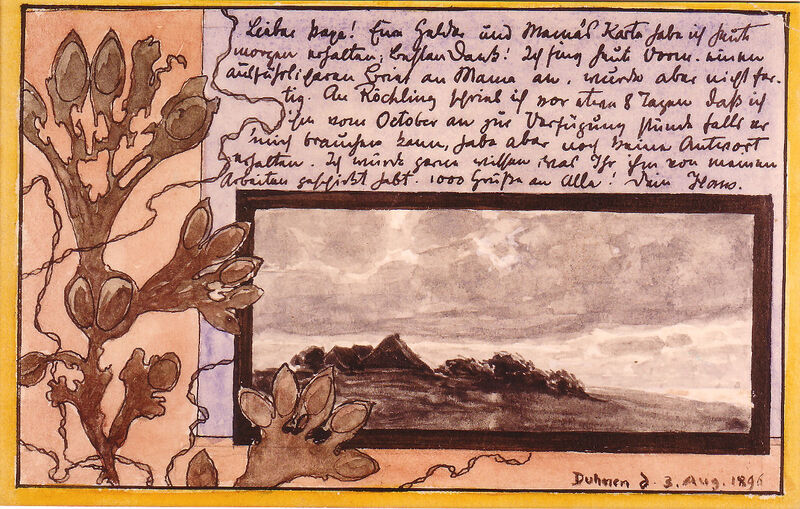 Lieber Papa! Eure Gelder und Mama's Karte habe ich heute
morgen erhalten, besten Dank! Ich fing heute Vorm. einen
ausführlicheren Brief an Mama an, wurde aber nicht fer-
tig. An Röchling schrieb ich vor etwa 8 Tagen daß ich
ihm vom October an zur Verfügung stünde falls er
mich brauchen kann, habe aber noch keine Antwort
erhalten. Ich würde gerne wissen was Ihr ihm von meinen
Arbeiten geschickt habt. 1000 Grüße an Alle! Dein Hans.
Duhnen d. 3. Aug. 1896